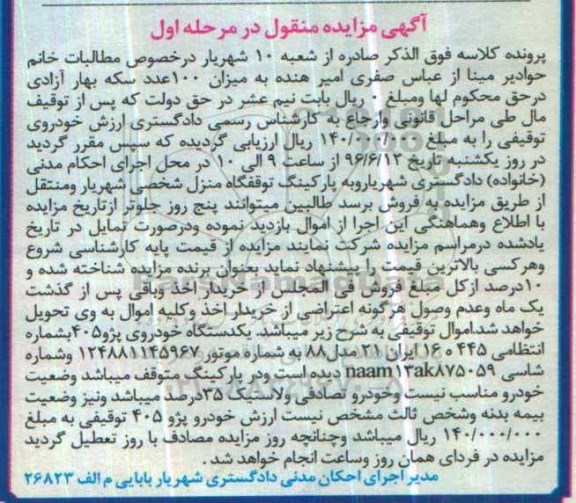 آگهی مزایده منقول در مرحله اول
پرونده کلاسه فوق الذکر صادره از شعبه ۱۰ شهریار درخصوص مطالبات خانم
حوادیر مینا از عباس صفری امیر هنده به میزان ۱۰۰عدد سکه بهار آزادی
درحق محکوم لها ومبلغ ۰ ریال بابت نیم عشر در حق دولت که پس از توقیف
مال طی مراحل قانونی وارجاع به کارشناس رسمی دادگستری ارزش خودروی
توقیفی را به مبلغ ۱۴۰/۰۰۰/۰۰۰ ریال ارزیابی گردیده که سپس مقرر گردید
در روز یکشنبه تاریخ ۹۶/۶/۱۲ از ساعت ۹ الی ۱۰ در محل اجرای احکام مدنی
(خانواده) دادگستری شهریاروبه پارکینگ توقفگاه منزل شخصی شهریار ومنتقل
از طریق مزایده به فروش برسد طالبین میتوانند پنج روز جلوتر ازتاریخ مزایده
با اطلاع وهماهنگی این اجرا از اموال بازدید نموده ودرصورت تمایل در تاریخ
یادشده درمراسم مزایده شرکت نمایند مزایده از قیمت پایه کارشناسی شروع
وهرکسی بالاترین قیمت را پیشنهاد نماید بعنوان برنده مزایده شناخته شده و
۱۰درصد ازکل مبلغ فروش فی المجلس از خریدار اخذ وباقی پس از گذشت
یک ماه وعدم وصول هرگونه اعتراضی از خریدار اخذ وکلیه اموال به وی تحویل
خواهد شد.اموال توقیفی به شرح زیر میباشد. یکدستگاه خودروی پژو۴۰۵بشماره
انتظامی ۴۴۵ ه ۱۶ ایران ۲۱ مدل ۸۸ به شماره موتور ۱۲۴۸۸۱۱۴۵۹۶۷ وشماره
شاسی naam۱۳ak۸۷۵۰۵۹ دیده است ودر پارکینگ متوقف میباشد وضعیت
خودرو مناسب نیست وخودرو تصادفی ولاستیک ۳۵درصد میباشد ونیز وضعیت
بیمه بدنه وشخص ثالث مشخص نیست ارزش خودرو پژو ۴۰۵ توقیفی به مبلغ
۱۴۰/۰۰۰/۰۰۰ ریال میباشد وچنانچه روز مزایده مصادف با روز تعطیل گردید
مزایده در فردای همان روز وساعت انجام خواهد شد.
مدیر اجرای احکان مدنی دادگستری شهریار بابایی م الف ۲۶۸۲۳